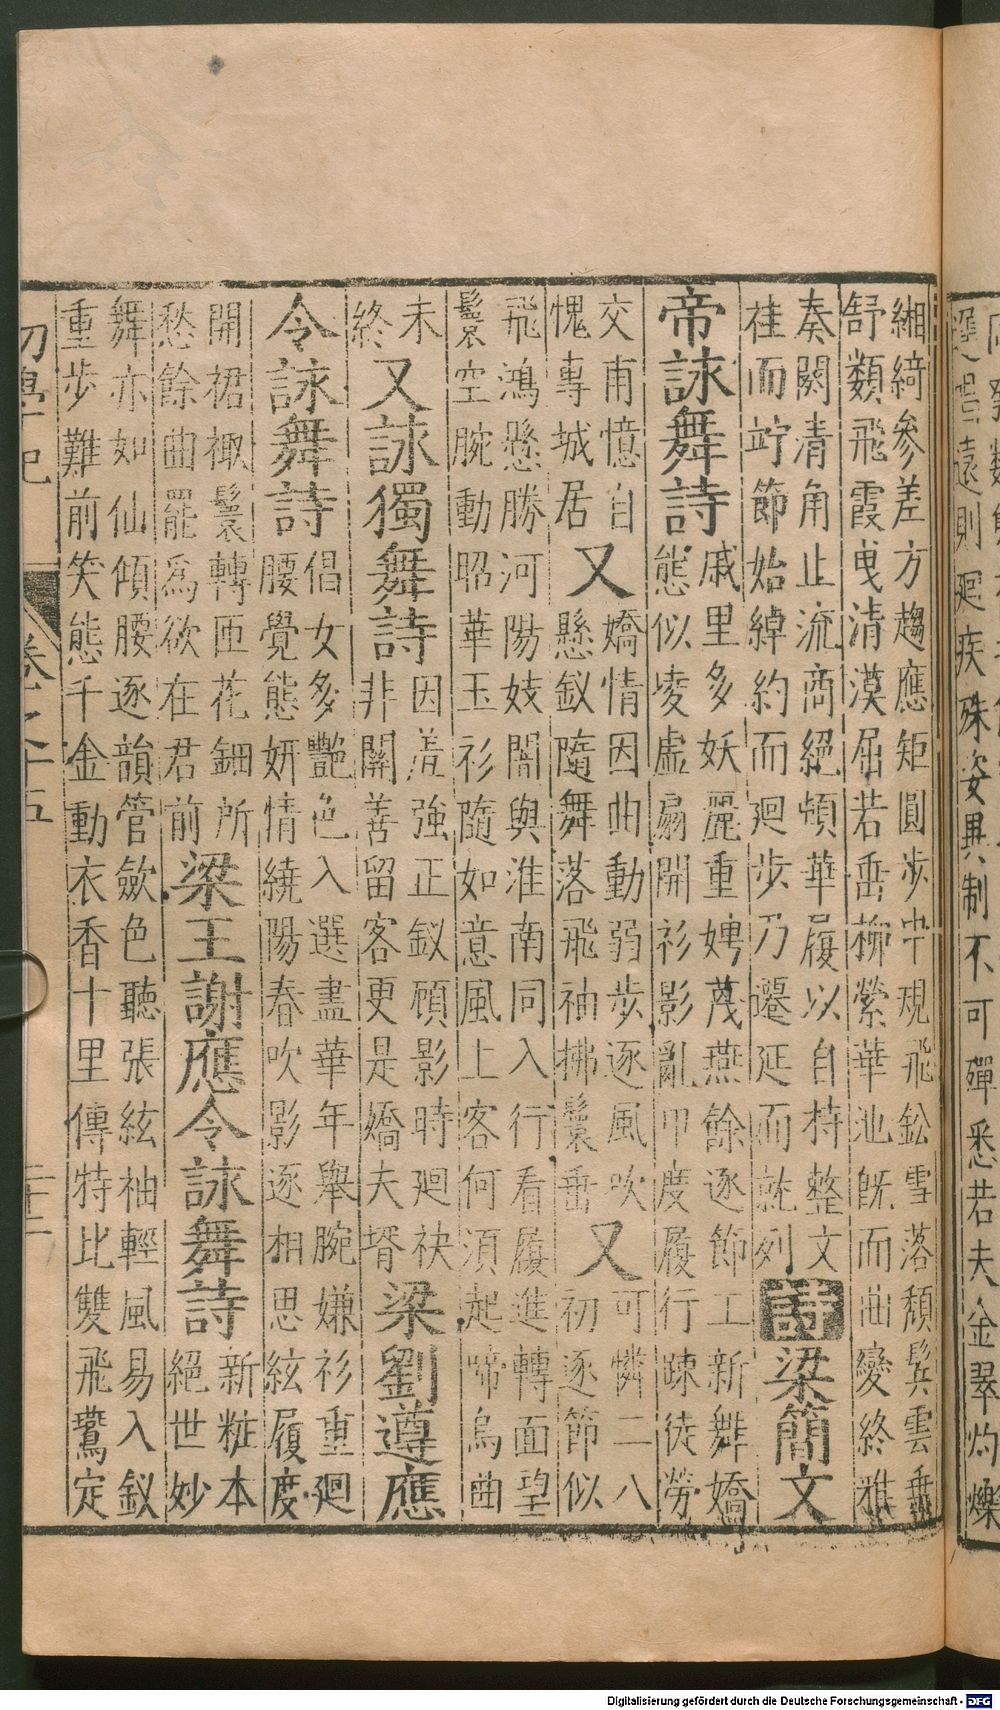 緗綺參差方趨應矩圓步中規飛鈆雪落頹髩雲垂
舒類飛霞曵清漠屈若垂柳縈華池旣而曲變終雅
奏闋清角止流商絕頓華履以自持整文
袿而竚節始綽約而廻步乃遷延而就列
詩梁簡文
帝詠舞詩
戚里多妖麗重娉蔑燕餘逐節工新舞嬌
態似凌虛扇開衫影亂巾度履行踈徒勞
交甫憶自
愧專城居
又
嬌情因曲動弱步逐風吹
懸釵隨舞落飛袖拂鬟垂
又
可憐二八
初逐節似
飛鴻懸勝河陽妓闇與淮南同入行看履進轉面望
鬟空腕動昭華玉衫隨如意風上客何須起啼烏曲
未
終
又詠獨舞詩
因羞強正釵頋影時廻袂
非關善留客更是嬌夫壻
梁劉遵應
令詠舞詩
倡女多艷色入選盡華年舉腕嫌衫重廻
腰覺態妍情繞陽春吹影逐相思絃履度
開裙襵鬟轉匝花鈿所
愁餘曲罷爲欲在君前
梁王謝應令詠舞詩
新粧本
絕世妙
舞亦如仙傾腰逐韻管斂色聽張絃袖輕風易入釵
重步難前笑態千金動衣香十里傳特比雙飛鷰定
初學記
卷之十五
遠則
疾殊姿異制不可殫悉若夫金翠灼爍
Digitalisierung gefördert durch die Deutsche Forschungsgemeinschaft - DFG